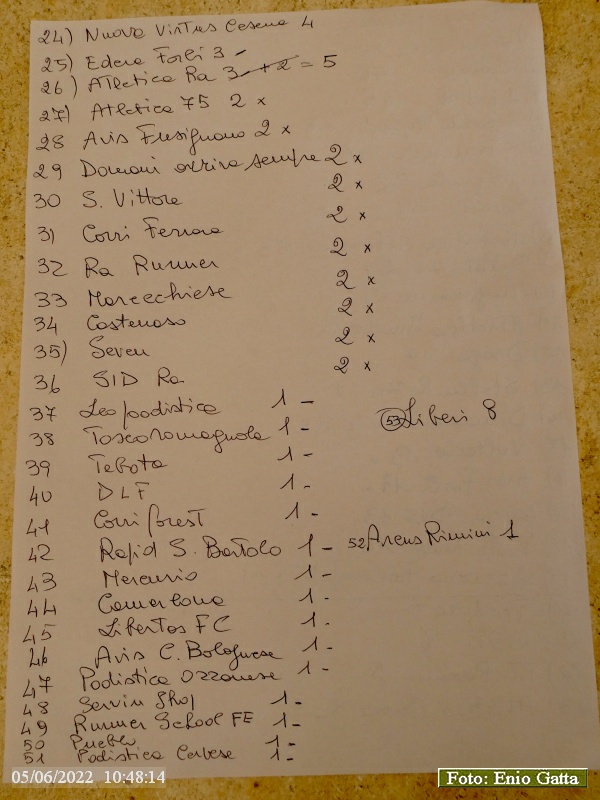 24) Nuova Virtus Cesena 4
25) Edera Forlì 3 -
26) Atletica Ra 3 + 2 = 5
27) Atletica 75 2 x
28 Avis Fusignano 2 x
29 Domani correra sempre 2 x
30 S. Vittore 2 x
31 Corri Ferrara 2 x
32 Ra Runner 2 x
33 Marecchiese 2 x
34 Castenaso 2 x
35) Seven 2 x
36 SID Ra 2 x
37 Leopodistica 1 -
53 Liberi 8
38 Toscoromagnola 1 -
39 Tebota 1 -
40 DLF 1 -
41 Corriforest 1 -
42 Rapid S. Bartolo 1 -
52 Arcus Rimini 1
43 Mercurio 1 -
44 Camerlona 1 -
45 Libertas FC 1 -
46 Avis C. Bolognese 1 -
47 Podistica Ozzanese 1 -
48 Servin Shop 1 -
49 Runner School FE 1 -
50 Pueblo 1 -
51 Podistica Cerbese 1 -
05/06/2022 10:48:14
Foto: Enio Gatta